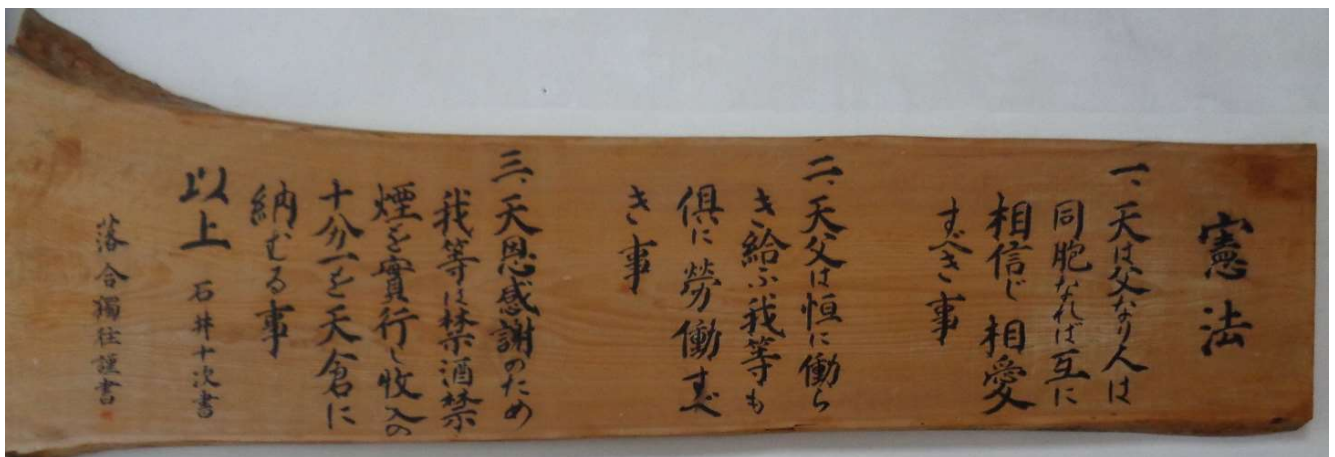 憲法
一、天は父なり人は
同胞なれば互に
相信じ相愛
すべき事
二、天父は恒に働ら
き給ふ我等も
俱に勞働すべ
き事
三、天恩感謝のため
我等は禁酒禁
煙を實行し收入の
十分一を天倉に
納むる事
以上 石井十次書
落合獨往謹書